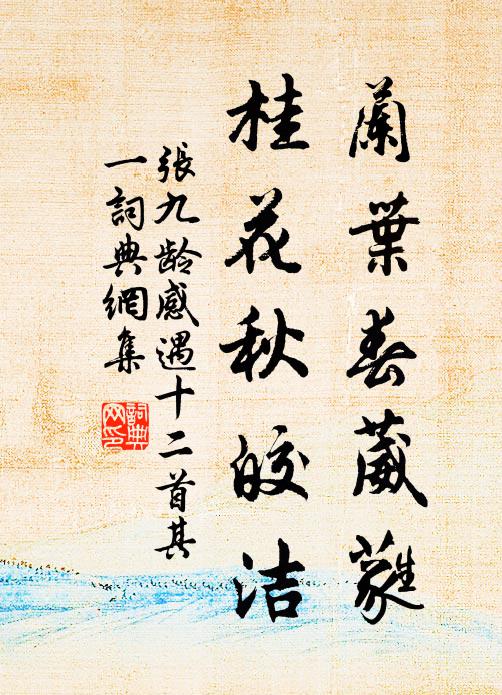 蘭葉春葳蕤
桂花秋皎洁
張九龄感遇十二首其
一詞典網集
詞典网印